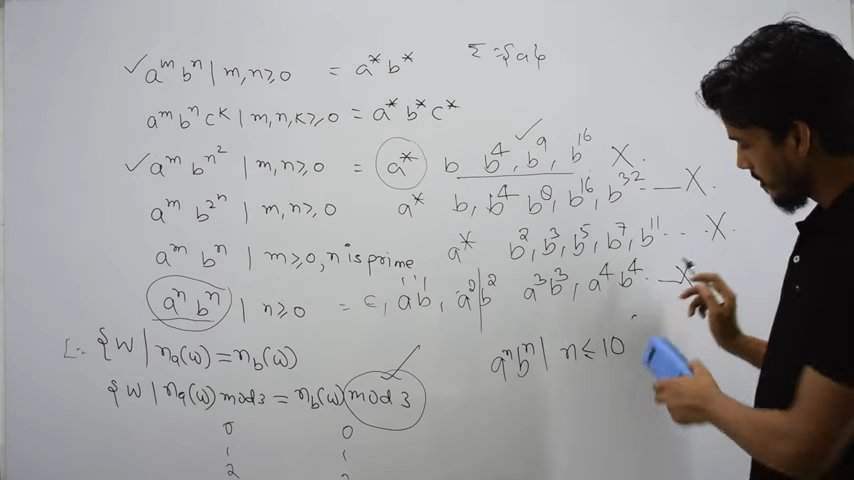 ✓ a^m b^n | m,n≥0 = a* b* Σ={a}
a^m b^n c^k | m,n,k≥0 = a* b* c*
✓ a^m b^{n^2} | m,n≥0 = a* b b^4, b^9, b^16 ✓ X.
a^m b^{2^n} | m,n≥0 a* b, b^4 b^8, b^16, b^32 — X.
a^m b^n | m≥0, n is prime a* b^2, b^3, b^5, b^7, b^11 ... X.
a^n b^n | n≥0 = ϵ, ab, a^2|b^2 a^3b^3, a^4b^4. — X
L= {W | n_a(w)=n_b(w)
a^n b^n | n≤10
{W | n_a(w) mod 3 = n_b(w) mod 3 ✓
0 0
1 1
2